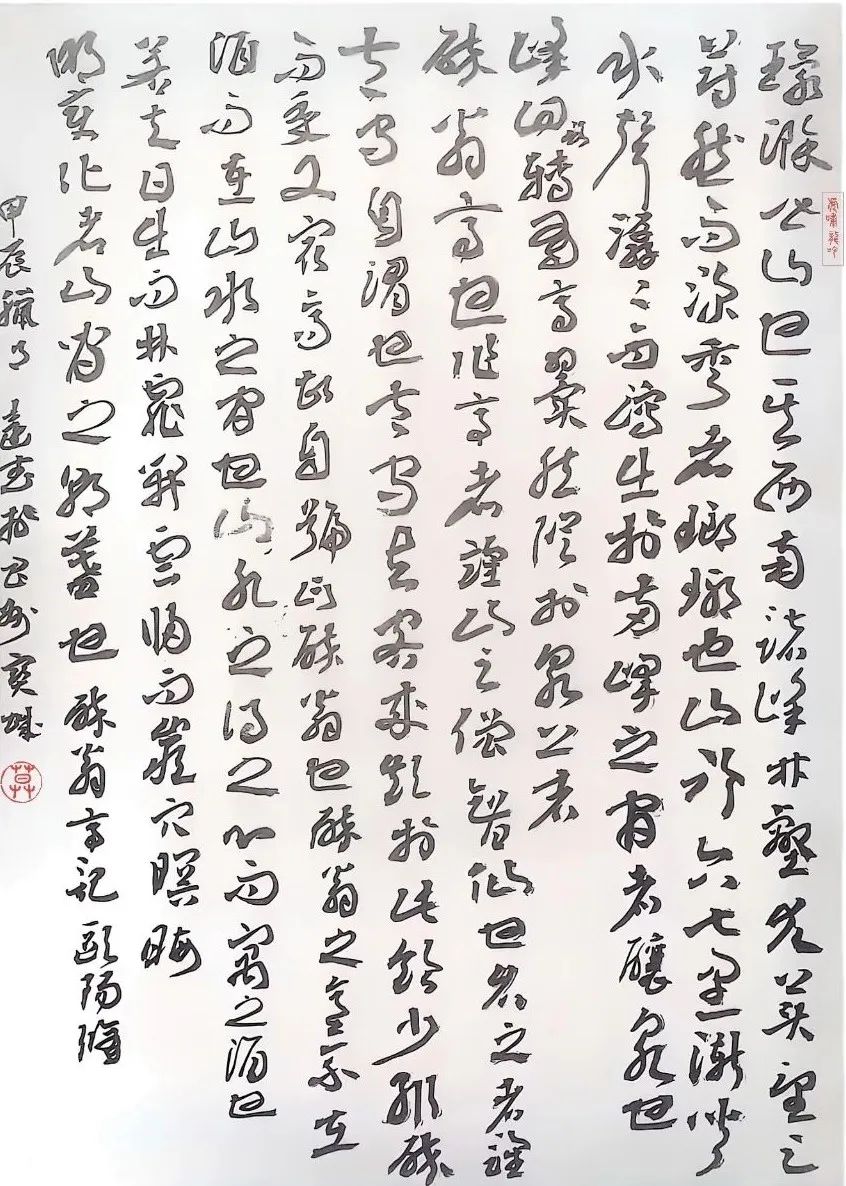 環滁皆山也其西南諸峰林壑尤美望之
蔚然而深秀者瑯琊也山行六七里漸聞
水聲潺〻而瀉出於兩峰之間者釀泉也
峰回路轉有亭翼然臨於泉上者
醉翁亭也作亭者誰山之僧智仙也名之者誰
太守自謂也太守與客來飲於此飲少輒醉
而年又最高故自號曰醉翁也醉翁之意不在
酒而在山水之間也山水之得之心而寓之酒也
若夫日出而林霏開雲歸而巖穴暝晦
明變化者山間之朝暮也醉翁亭記歐陽脩
甲辰臘月於州寶城